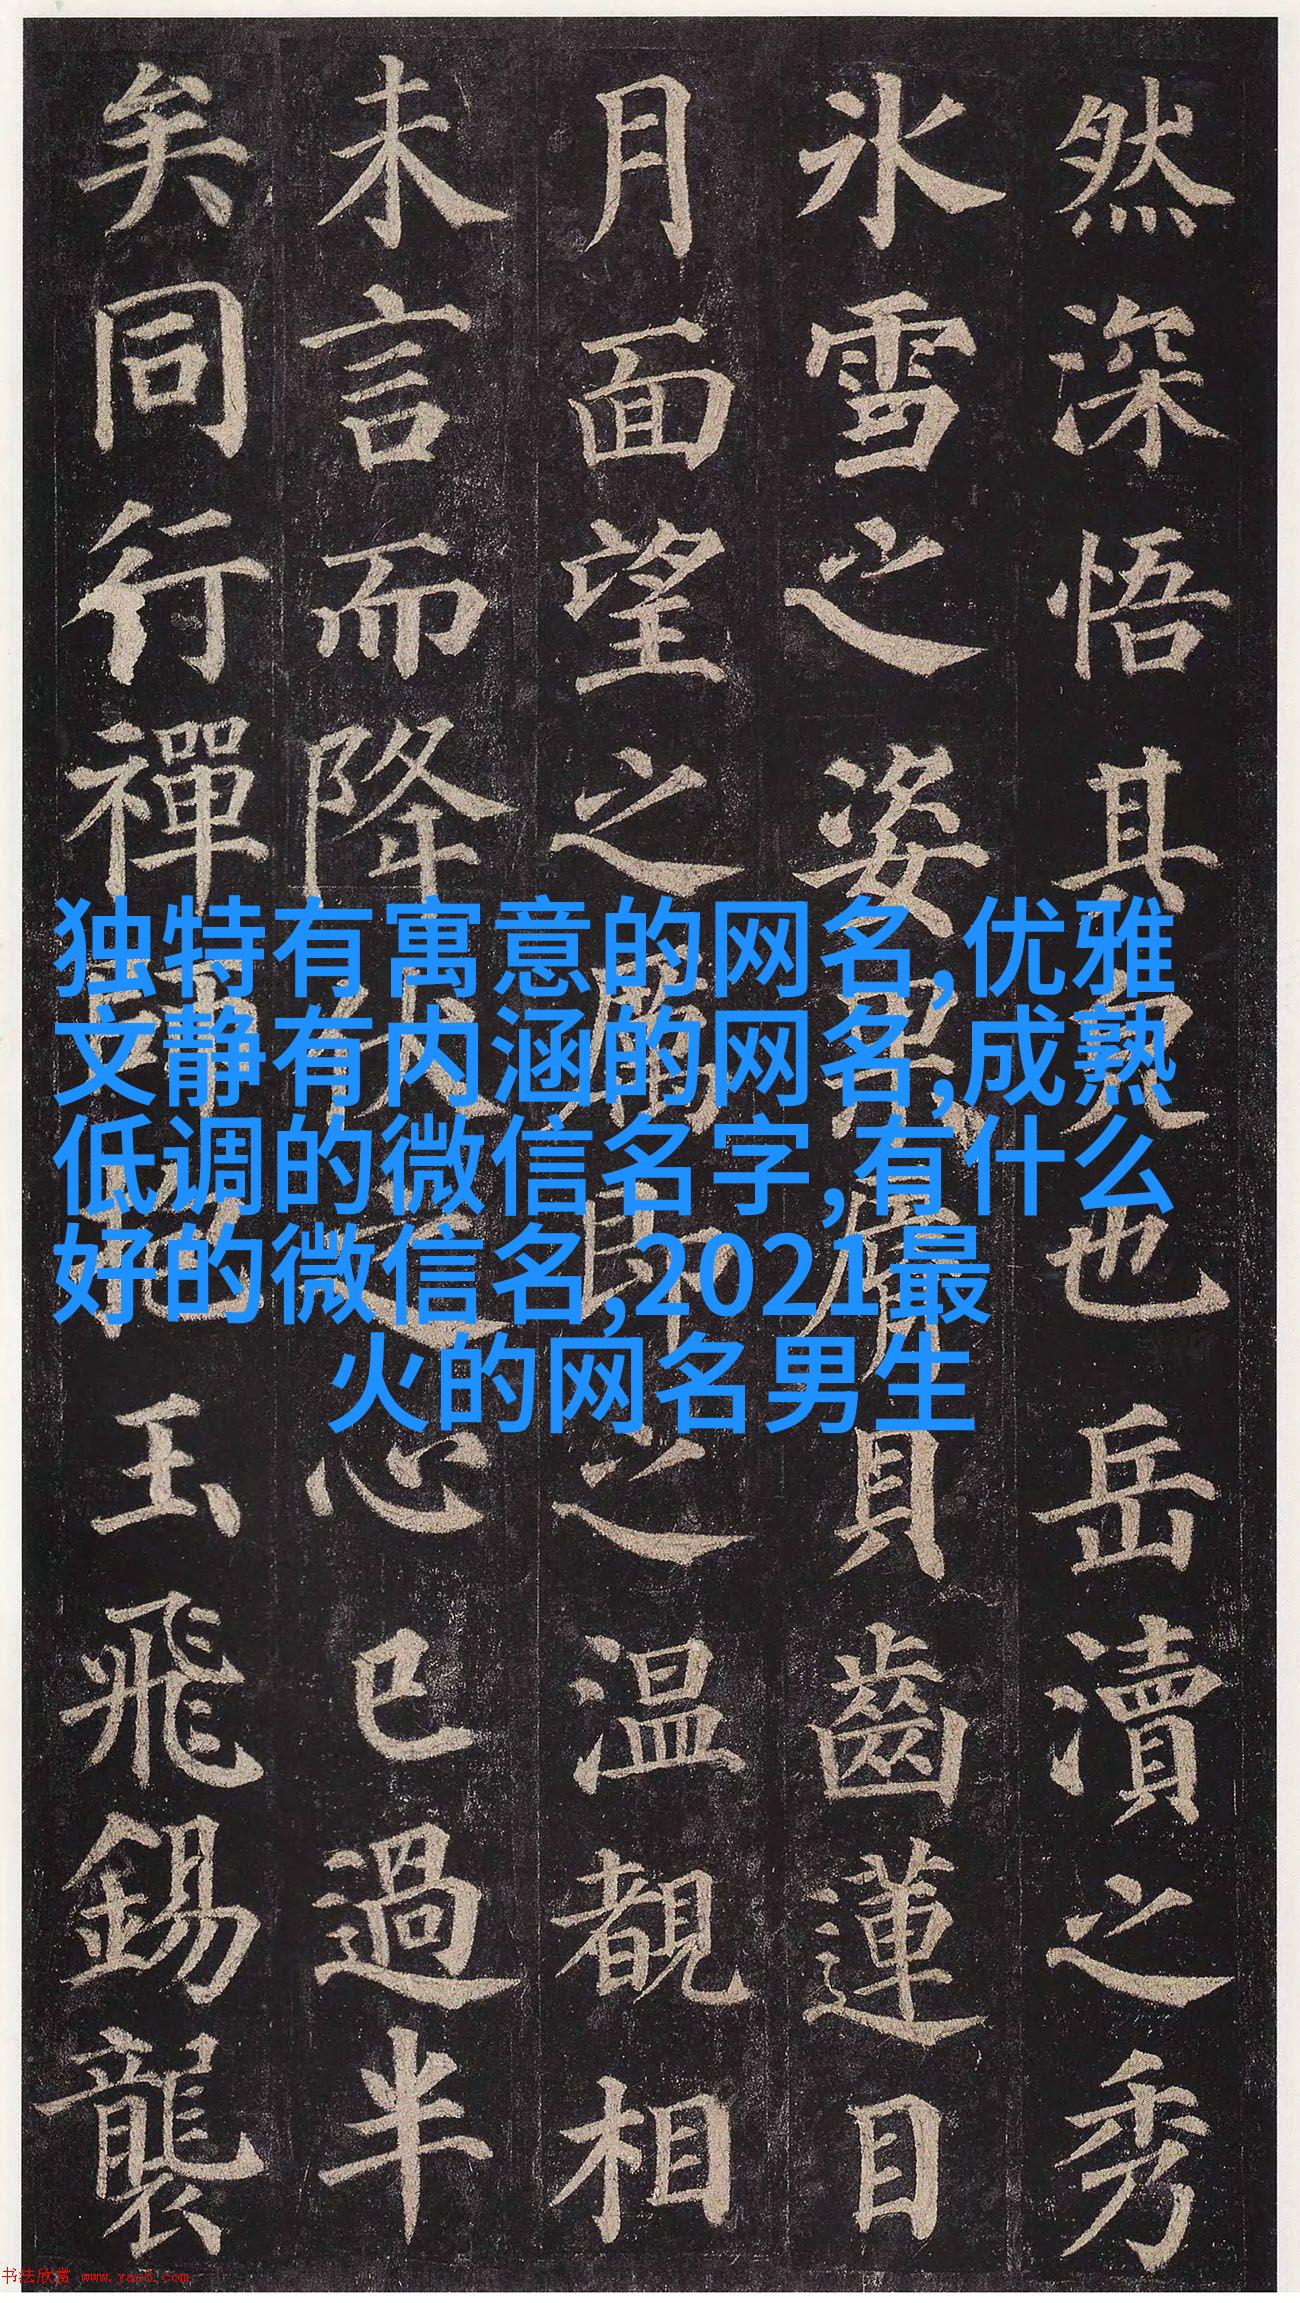 然深悟其皃也岳瀆之秀
氷雪之姿果脣貝齒蓮目
月面望之厲即之温覩相
未言而降伏之心已過半
矣同行禪師抱玉飛錫襲
独特有寓意的网名,优雅
文静有内涵的网名,成熟
低调的微信名字,有什么
好的微信名,2021最
火的网名男生
书法欣赏 www.yac8.com